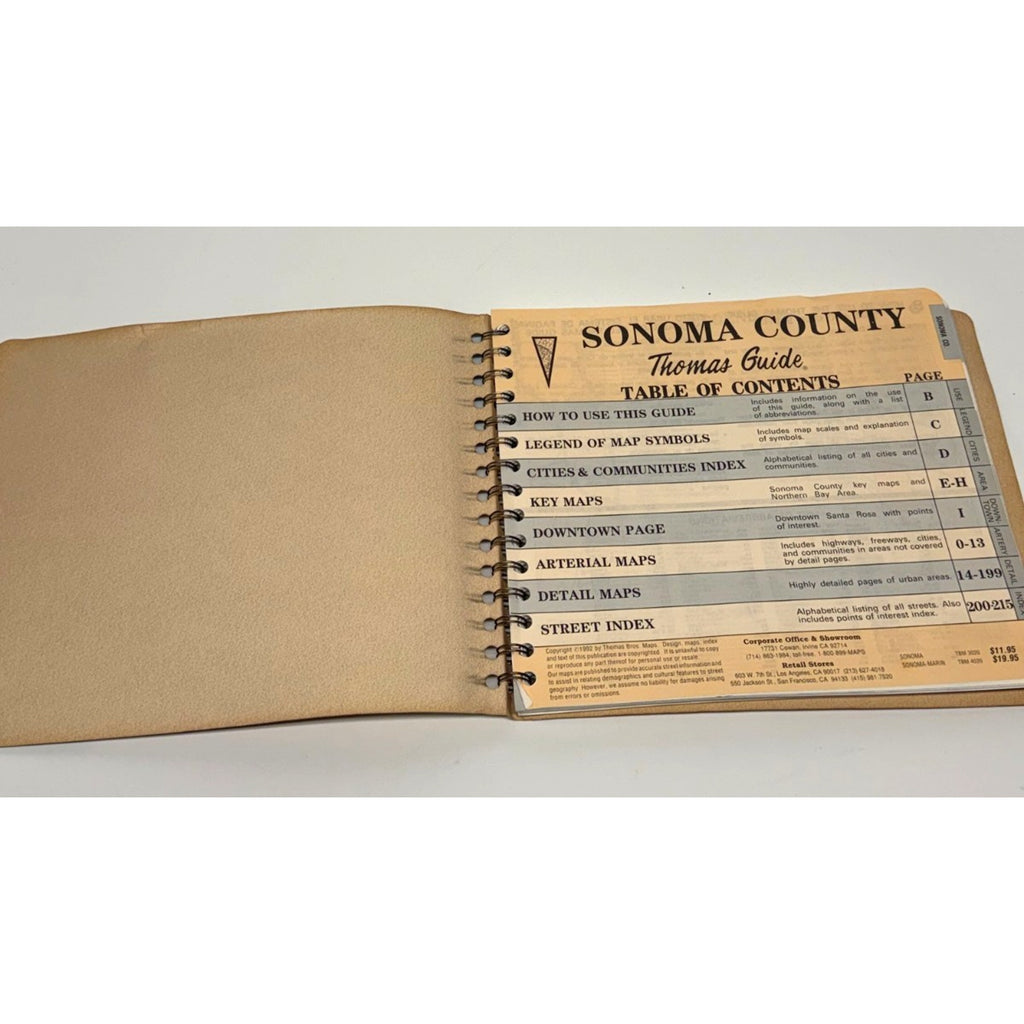 SONOMA COUNTY
Thomas Guide®
TABLE OF CONTENTS
PAGE
HOW TO USE THIS GUIDE
Includes information on the use
of this guide, along with a list
of abbreviations.
B
LEGEND OF MAP SYMBOLS
Includes map scales and explanation
of symbols.
C
CITIES & COMMUNITIES INDEX
Alphabetical listing of all cities and
communities.
D
KEY MAPS
Sonoma County key maps and
Northern Bay Area.
E-H
DOWNTOWN PAGE
Downtown Santa Rosa with points
of interest.
I
ARTERIAL MAPS
Includes highways, freeways, cities,
and communities in areas not covered
by detail pages.
0-13
DETAIL MAPS
Highly detailed pages of urban areas.
14-199
STREET INDEX
Alphabetical listing of all streets. Also
includes points of interest index.
200-215
SONOMA CO
USE
LEGEND
CITIES
AREA
DOWN-
TOWN
ARTERY
DETAIL
Copyright ©1992 by Thomas Bros. Maps. Design, maps, index
and text of this publication are copyrighted. It is unlawful to copy
or reproduce any part thereof for personal use or resale.
Our maps are published to provide accurate street information and
to assist in relating demographics and cultural features to street
geography. However, we assume no liability for damages arising
from errors or omissions.
Corporate Office & Showroom
17731 Cowan, Irvine CA 92714
(714) 863-1984, toll-free, 1-800-899-MAPS
Retail Stores
603 W. 7th St., Los Angeles, CA 90017 (213) 627-4018
550 Jackson St., San Francisco, CA 94133 (415) 981-7520
SONOMA TBM 3020 $11.95
SONOMA-MARIN TBM 4020 $19.95